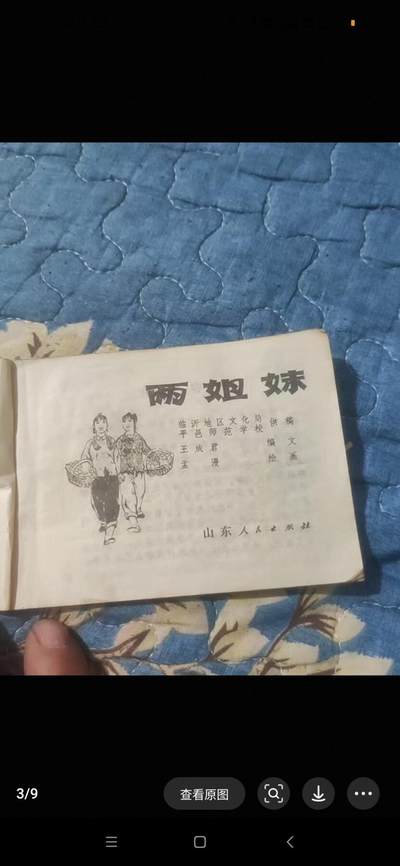 两姐妹
临沂地区文化局 供稿
平邑师范学校
王成君 编文
孟漫 绘画
山东人民出版社
3/9
查看原图